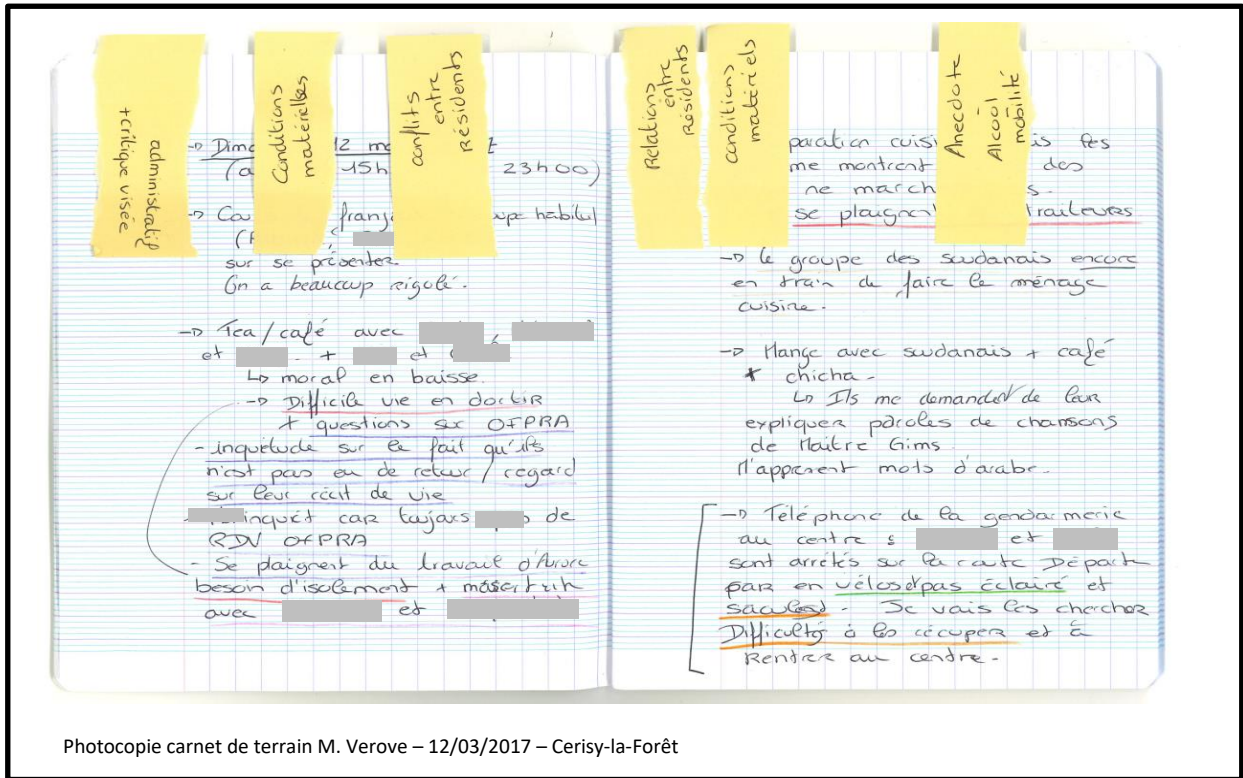 administratif
+critique visée
Conditions
matérielles
conflits
entre
Résidents
-> Dim 12 m
15h 23h00)
-> franç habituel
sur se présenter.
On a beaucoup rigolé.
-> Tea/café avec ,
et - + et
↳ moral en baisse.
-> Difficile vie en dortir
+ questions sur OFPRA
- inquiétude sur le fait qu'ils
n'ont pas eu de retour / regard
sur leur récit de vie
- inquiet car toujours de
RDV OFPRA
- Se plaignent du travail d'Aurore
besoin d'isolement +
avec et
Relations
entre
Résidents
conditions
matériels
Anecdote
Alcool
mobilité
paration cuisi is les
me montrent des
ne march s.
se plaignent traiteurs
-> le groupe des soudanais encore
en train de faire le ménage
cuisine.
-> Mange avec soudanais + café
+ chicha -
↳ Ils me demandent de leur
expliquer paroles de chansons
de Maitre Gims.
M'apprenent mots d'arabe.
-> Téléphone de la gendarmerie
au centre : et
sont arrêtés sur la route Départ
par en vélos et pas éclairé et
saculés - Je vais les chercher
Difficultés à les récuper et à
Rentrer au centre -
Photocopie carnet de terrain M. Verove – 12/03/2017 – Cerisy-la-Forêt